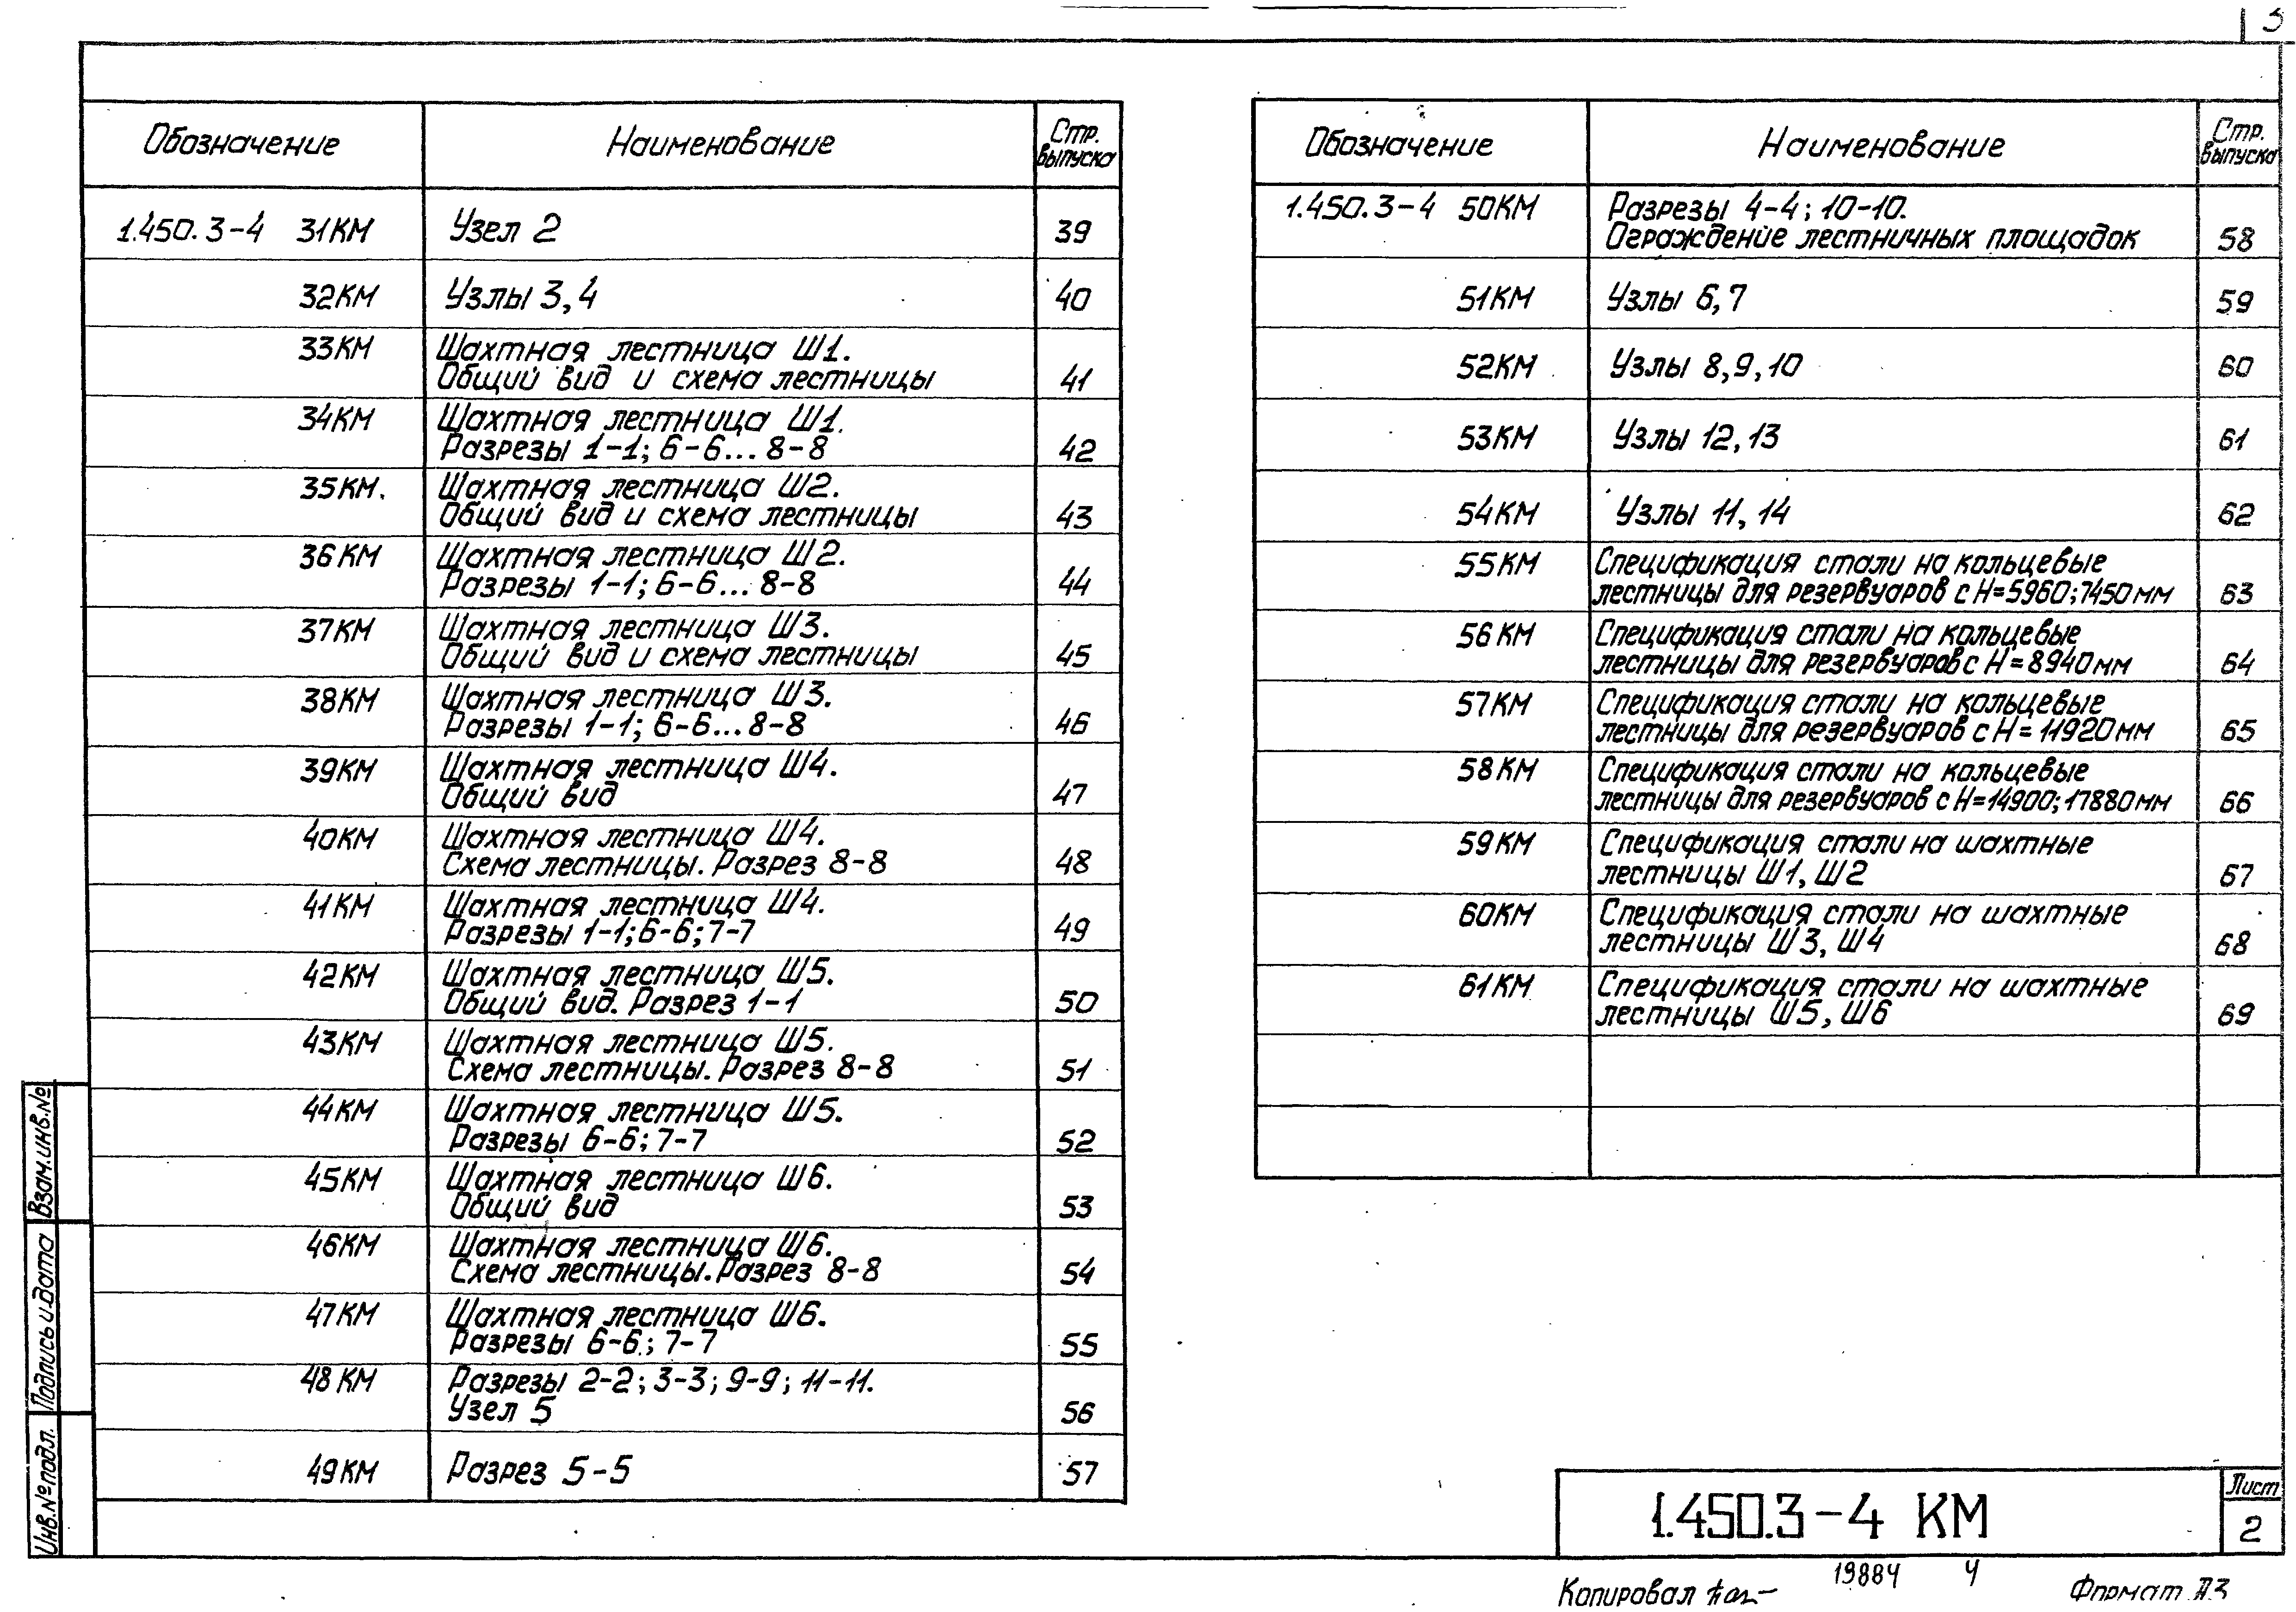 3
Обозначение Наименование Стр. выпуска
1.450.3-4 31КМ Узел 2 39
32КМ Узлы 3,4 40
33КМ Шахтная лестница Ш1.
Общий вид и схема лестницы 41
34КМ Шахтная лестница Ш1.
Разрезы 1-1; 6-6...8-8 42
35КМ. Шахтная лестница Ш2.
Общий вид и схема лестницы 43
36КМ Шахтная лестница Ш2.
Разрезы 1-1; 6-6...8-8 44
37КМ Шахтная лестница Ш3.
Общий вид и схема лестницы 45
38КМ Шахтная лестница Ш3.
Разрезы 1-1; 6-6...8-8 46
39КМ Шахтная лестница Ш4.
Общий вид 47
40КМ Шахтная лестница Ш4.
Схема лестницы. Разрез 8-8 48
41КМ Шахтная лестница Ш4.
Разрезы 1-1; 6-6; 7-7 49
42КМ Шахтная лестница Ш5.
Общий вид. Разрез 1-1 50
43КМ Шахтная лестница Ш5.
Схема лестницы. Разрез 8-8 51
44КМ Шахтная лестница Ш5.
Разрезы 6-6; 7-7 52
45КМ Шахтная лестница Ш6.
Общий вид 53
46КМ Шахтная лестница Ш6.
Схема лестницы. Разрез 8-8 54
47КМ Шахтная лестница Ш6.
Разрезы 6-6; 7-7 55
48КМ Разрезы 2-2; 3-3; 9-9; 11-11.
Узел 5 56
49КМ Разрез 5-5 57
Обозначение Наименование Стр. выпуска
1.450.3-4 50КМ Разрезы 4-4; 10-10.
Ограждение лестничных площадок 58
51КМ Узлы 6,7 59
52КМ Узлы 8,9,10 60
53КМ Узлы 12,13 61
54КМ Узлы 11,14 62
55КМ Спецификация стали на кольцевые
лестницы для резервуаров с Н=5960; 7450мм 63
56КМ Спецификация стали на кольцевые
лестницы для резервуаров с Н=8940мм 64
57КМ Спецификация стали на кольцевые
лестницы для резервуаров с Н=11920мм 65
58КМ Спецификация стали на кольцевые
лестницы для резервуаров с Н=14900; 17880мм 66
59КМ Спецификация стали на шахтные
лестницы Ш1, Ш2 67
60КМ Спецификация стали на шахтные
лестницы Ш3, Ш4 68
61КМ Спецификация стали на шахтные
лестницы Ш5, Ш6 69
Взам.инв.№
Подпись и дата
Инв.№ подл.
1.450.3-4 КМ
Лист
2
Копировал 19884 4 Формат А3